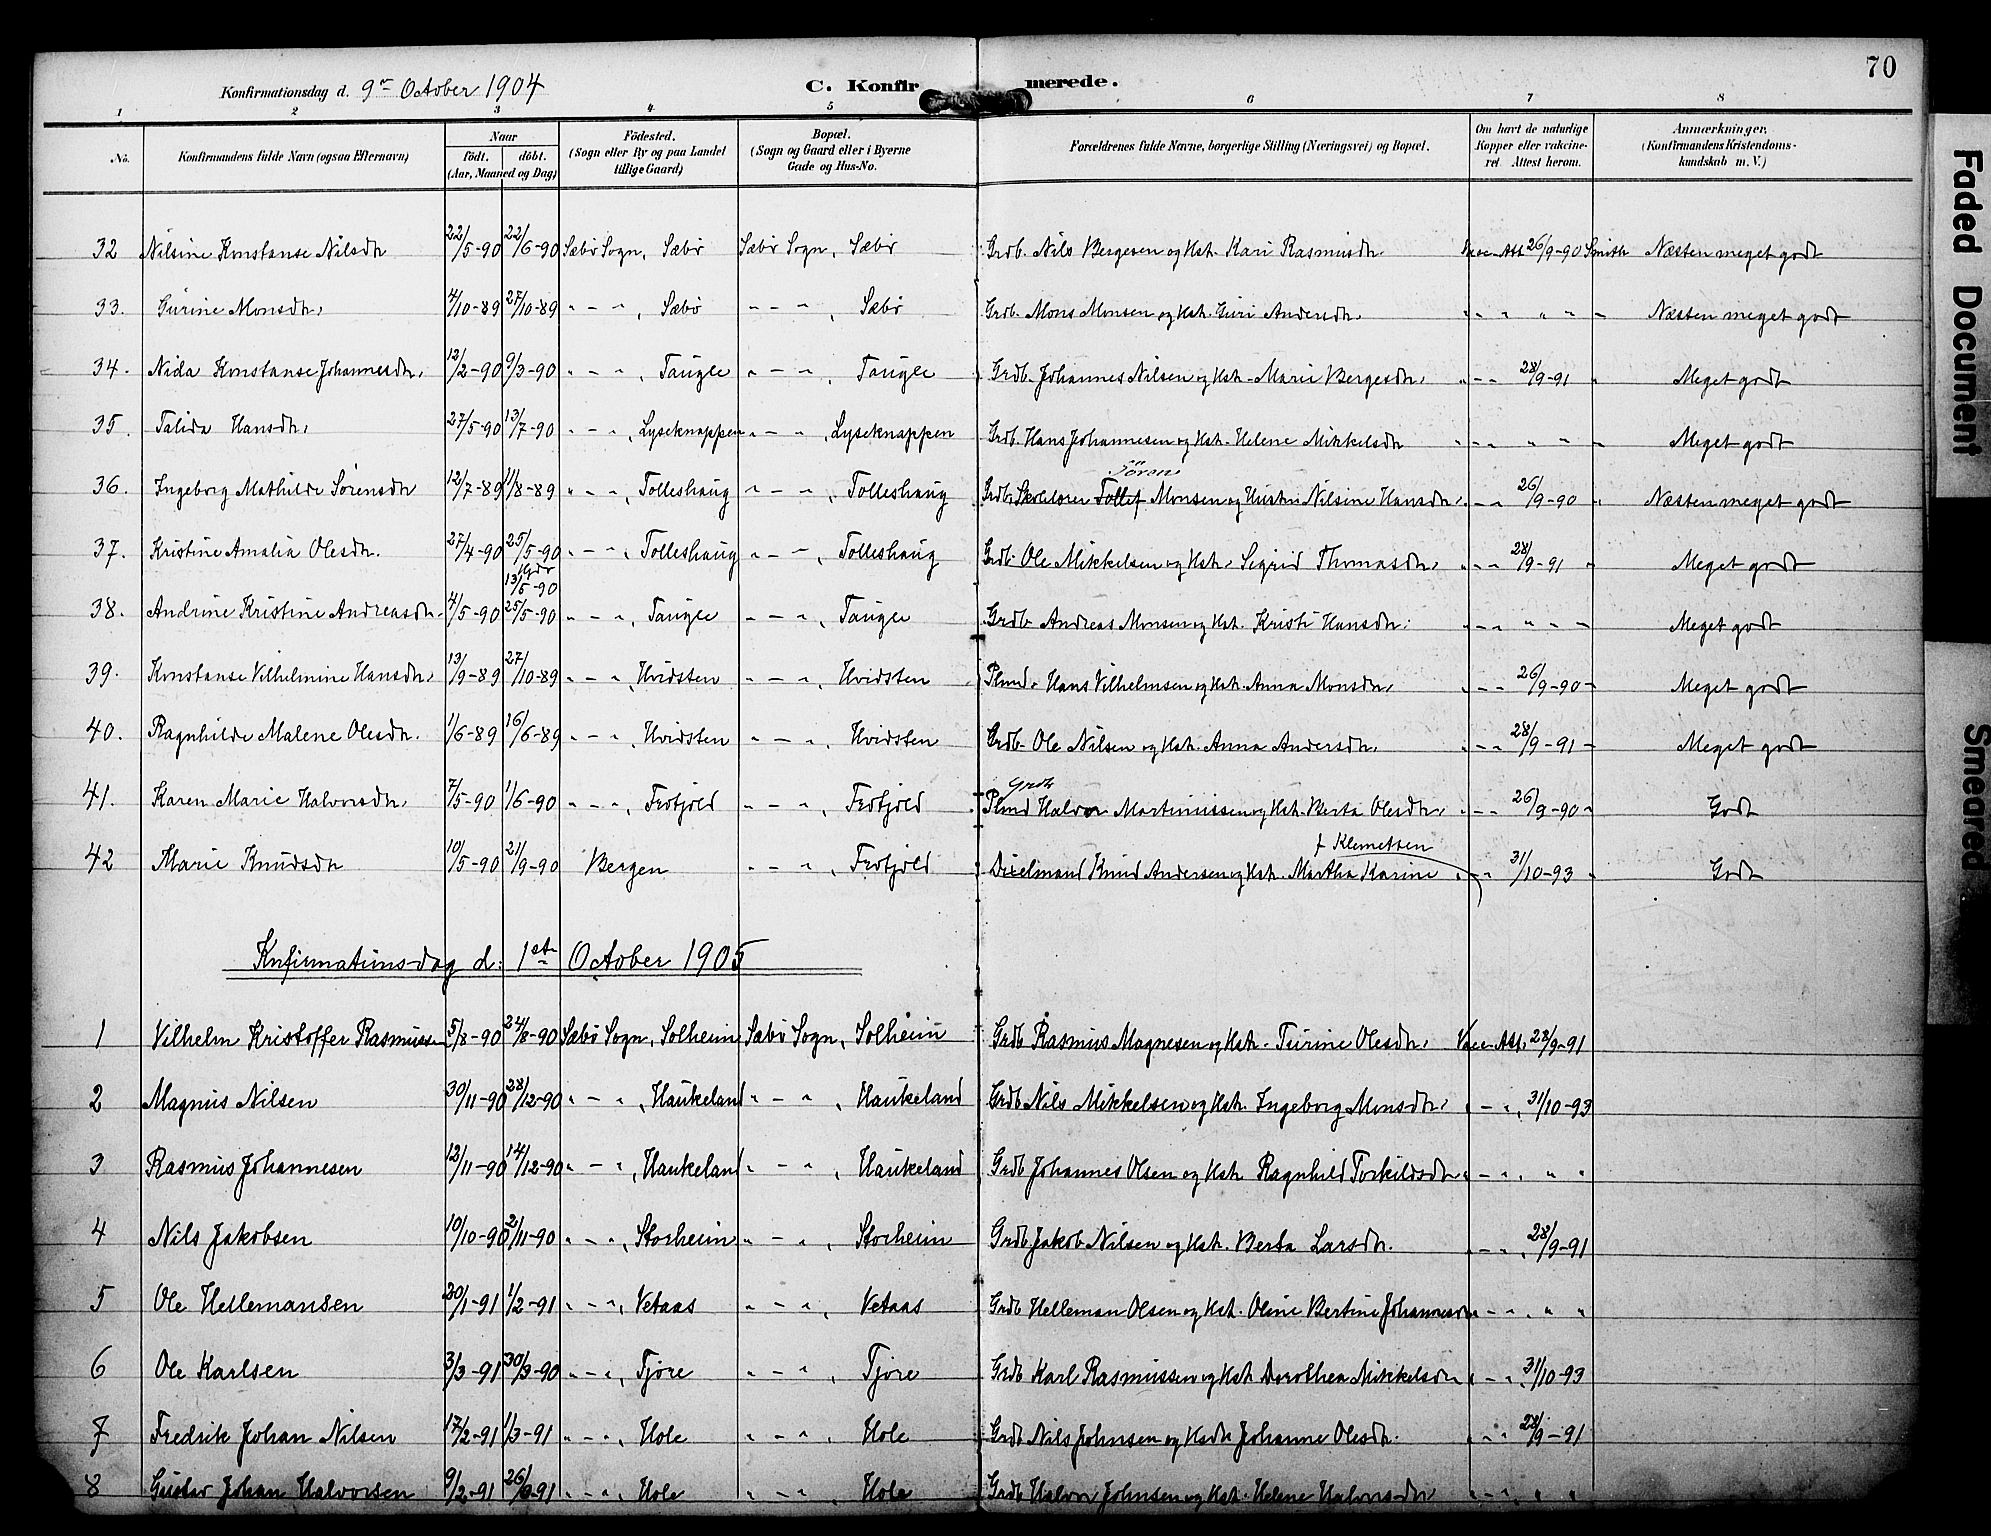 70
Konfirmationsdag d. 9de October 1904 C. Konfirmerede.
1 2 3 4 5 6 7 8
No. Konfirmandens fulde Navn (ogsaa Efternavn) Naar födt. döbt. (Aar, Maaned og Dag) Födested. (Sogn eller By og paa Landet tillige Gaard) Bopæl. (Sogn og Gaard eller i Byerne Gade og Hus-No. Forældrenes fulde Navne, borgerlige Stilling (Næringsvei) og Bopæl. Om havt de naturlige Kopper eller vakcineret Attest herom. Anmærkninger. (Konfirmandens Kristendomskundskab m. V.)
32 Nilsine Konstanse Nilsdtr 22/5-90 22/6-90 Sæbø Sogn, Sæbø Sæbø Sogn, Sæbø Grdb. Nils Bergesen og Hst. Kari Rasmusdtr. Vacc. Att. 26/9-90 Smith Næsten meget godt
33. Gurine Monsdtr. 4/10-89 27/10-89 " - " , Sæbø " - " , Sæbø Grdb. Mons Monsen og Hst. Guri Andersdtr. " - " " " - Næsten meget godt
34. Nida Konstanse Johannesdtr. 12/2-90 9/3-90 " - " , Taugle " - " , Taugle Grdb. Johannes Nilsen og Hst. Marie Bergesdtr. " - " 28/9-91 " Meget godt
35. Talida Hansdtr. 27/5-90 13/7-90 " - " , Lyseknappen " - " , Lyseknappen Grdb. Hans Johannesen og Hst. Helene Mikkelsdtr " - " " " - Meget godt
Sören
36. Ingeborg Mathilde Sörensdtr 12/7-89 11/8-89 " - " , Tolleshaug " - " , Tolleshaug Grdb. Skolelærer Tollef Monsen og Hustru Nilsine Hansdtr. " - " 26/9-90 " Næsten meget godt
37. Kristine Amalia Olesdtr. 27/4-90 25/5-90 " - " , Tolleshaug " - " , Tolleshaug Grdb. Ole Mikkelsen og Hst. Sigrid Thomasdtr. " - " 28/9-91 " Meget godt
13/5-90
38. Andrine Kristine Andreasdtr. 4/5-90 25/5-90 " - " , Taugle " - " , Taugle Grdb. Andreas Monsen og Hst. Kristi Hansdtr. " - " " " - Meget godt
39. Konstanse Vilhelmine Hansdtr. 13/9-89 27/10-89 " - " , Hvidsten " - " , Hvidsten Plmd. Hans Vilhelmsen og Hst. Anna Monsdtr. " - " 26/9-90 - Meget godt
40. Ragnhilde Malene Olesdtr. 1/6-89 16/6-89 " - " , Hvidsten " - " , Hvidsten Grdb. Ole Nilsen og Hst. Anna Andersdtr. " - " 28/9-91 - Meget godt
Grdb
41. Karen Marie Halvorsdtr. 7/5-90 1/6-90 " - " , Frotjold " - " , Frotjold Plmd Halvor Martinussen og Hst. Berta Olesdtr. " - " 26/9-90 " Godt
f. Klemetsen
42 Marie Knudsdtr 10/5-90 21/9-90 Bergen " - " , Frotjold Knud Andersen og Hst. Martha Karine " - " 31/10-93 " Godt
Konfirmationsdag d: 1ste October 1905
1 Vilhelm Kristoffer Rasmussen 5/8-90 24/8-90 Sæbø Sogn, Solheim Sæbø Sogn, Solheim Grdb Rasmus Magnesen og Hst. Turine Olesdtr. Vacc. Att. 28/9-91
2 Magnus Nilsen 30/11-90 28/12-90 " - " , Haukeland " - " , Haukeland Grdb Nils Mikkelsen og Hst. Ingeborg Monsdtr. " - " , 31/10-93
3 Rasmus Johannesen 12/11-90 14/12-90 " - " , Haukeland " - " , Haukeland Grdb Johannes Olsen og Hst. Ragnhild Torkildsdtr " - " , " "
4 Nils Jakobsen 10/10-90 2/11-90 " - " , Storheim " - " , Storheim Grdb. Jakob Nilsen og Hst. Berta Larsdtr. " - " , 28/9-91
5 Ole Hellemansen 20/1-91 1/2-91 " - " , Vetaas " - " , Vetaas Grdb Helleman Olsen og Hst. Oline Bertine Johannesdtr " - " , " "
6 Ole Karlsen 3/3-91 30/3-90 " - " , Tjore " - " , Tjore Grdb Karl Rasmussen og Hst. Dorothea Mikkelsdtr " - " , 31/10-93
7 Fredrik Johan Nilsen 17/2-91 1/3-91 " - " , Hole " - " , Hole Grdb Nils Johnsen og Hst Johanne Olesdtr. " - " 28/9-91
8 Gustav Johan Halvorsen 9/2-91 " - " , Hole " - " , Hole Grdb Halvor Johnsen og Hst. Helene Halvorsdtr. " - " , " "
Faded Document
Smeared